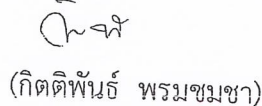 (กิตติพันธ์ พรมชมชา)